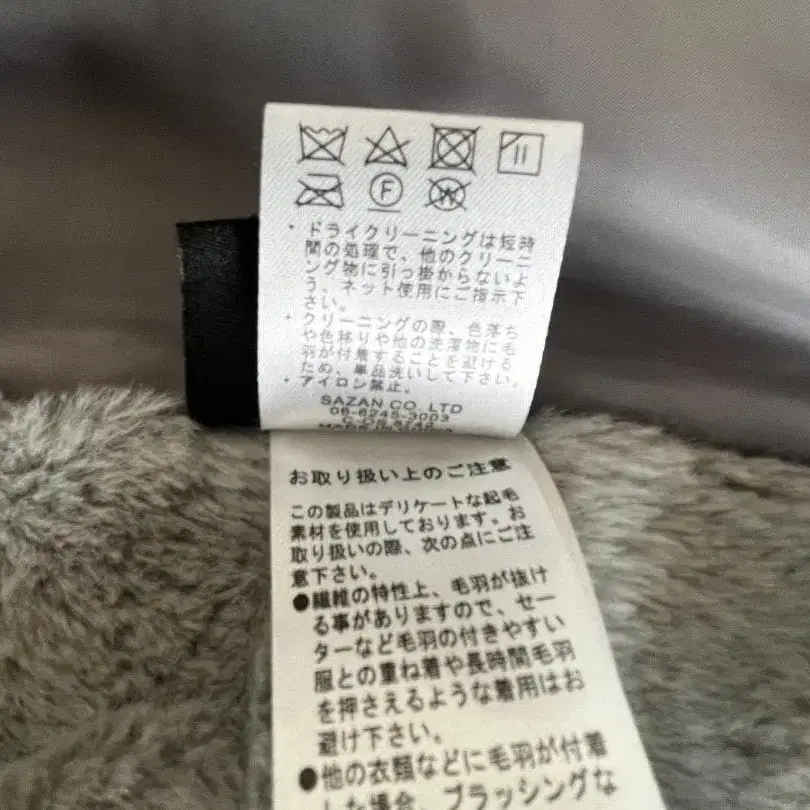 F
W
・ドライクリーニングは短時
間の処理で、他のクリーニ
ング物に引っ掛からないよ
う、ネット使用にご指示下
さい。
・クリーニングの際、色落ち
や色移りや他の洗濯物に毛
羽が付着することを避ける
ため、単品洗いして下さい。
・アイロン禁止。
SAZAN CO. LTD
06-6245-3003
お取り扱い上のご注意
この製品はデリケートな起毛
素材を使用しております。お
取り扱いの際、次の点にご注
意下さい。
●繊維の特性上、毛羽が抜け
る事がありますので、セー
ターなど毛羽の付きやすい
服との重ね着や長時間毛羽
を押さえるような着用はお
避け下さい。
●他の衣類などに毛羽が付着
した場合、ブラッシングな